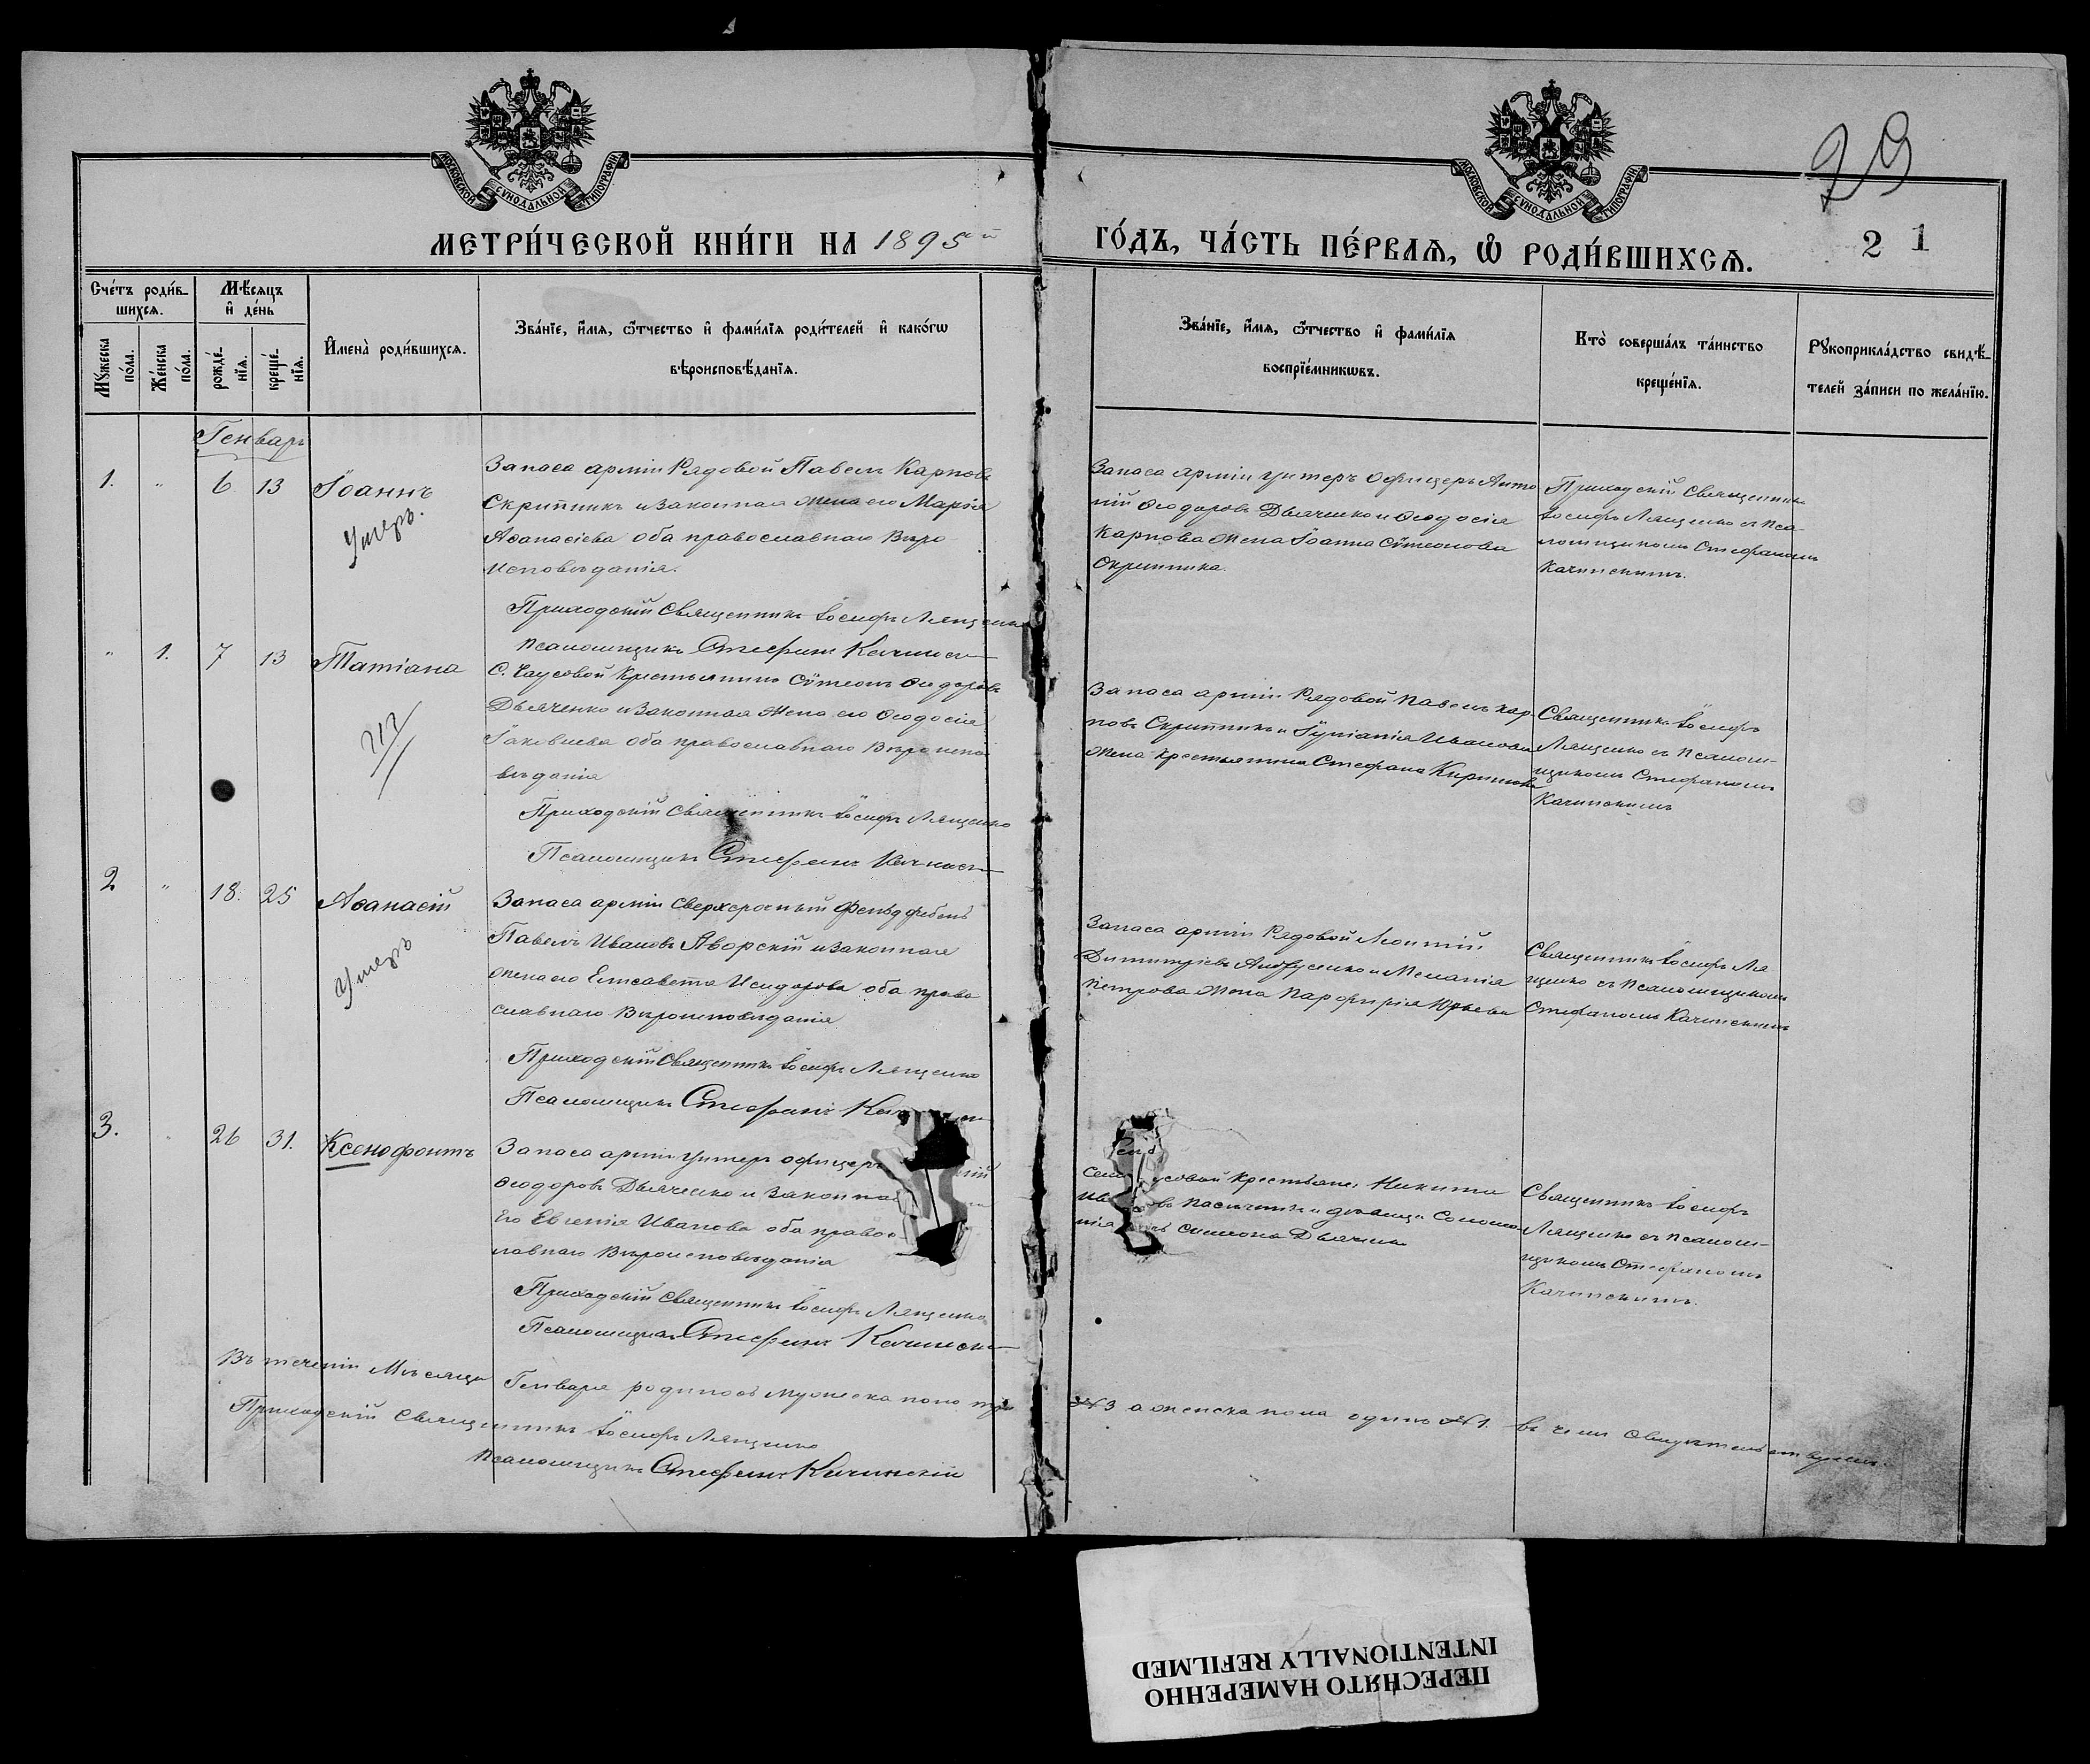 МОСКОВСКОЙ СѴНОДАЛЬНОЙ ТИПОГРАФІИ
МОСКОВСКОЙ СѴНОДАЛЬНОЙ ТИПОГРАФІИ
29
МЕТРИ́ЧЕСКОЙ КНИ́ГИ НА 1895й
ГО́ДЪ, ЧА́СТЬ ПЕ́РВАѦ, Ѡ҆ РОДИ́ВШИХСѦ.
2 1
Сче́тъ роди́в-
шихсѧ.
Мѣ́сѧцъ
и҆ де́нь
Мꙋ́жеска
по́ла.
Же́нска
по́ла.
рожде́-
нїѧ.
креще́-
нїѧ.
И҆мена̀ роди́вшихсѧ.
Зва́нїе, и҆́мѧ, ѻ҆́тчество и҆ фами́лїѧ роди́телей и҆ како́гѡ
вѣроисповѣ́данїѧ.
Зва́нїе, и҆́мѧ, ѻ҆́тчество и҆ фами́лїѧ
воспрїе́мникѡвъ.
Кто̀ соверша́лъ та́инство
креще́нїѧ.
Рꙋкоприкла́дство свидѣ́-
телей за́писи по жела́нїю.
Генварь
1. " 6 13 Іоаннъ
Умеръ.
Запаса арміи Рядовой Павелъ Карповъ
Скрипникъ и законная жена его Марія
Аѳанасіева оба православнаго Вѣро
исповѣданія.
Приходскій Священникъ Іосифъ Лященко
Псаломщикъ Стефанъ Качинскі
Запаса арміи унтеръ офицеръ Анто
ній Ѳеодоровъ Дьяченко и Ѳеодосія
Карпова жена Іоанна Сѵмеонова
Скрипника.
Приходскій Священникъ
Іосифъ Лященко съ Пса
ломщикомъ Стефаномъ
Качинскимъ.
" 1. 7 13 Татіана
С. Чаусовой Крестьянинъ Сѵмеонъ Ѳеодоровъ
Дьяченко и законная жена его Ѳеодосія
Іаковлева оба православнаго Вѣроиспо
вѣданія
Приходскій Священникъ Іосифъ Лященко
Псаломщикъ Стефанъ Качинскі
Запаса арміи Рядовой Павелъ Кар
повъ Скрипникъ и Іуліанія Иванова
жена Крестьянина Стефана Кириллова
Священникъ Іосифъ
Лященко съ Псалом-
щикомъ Стефаномъ
Качинскимъ
2 " 18. 25 Аѳанасій
Умеръ
Запаса арміи Сверхсрочный Фельдфебель
Павелъ Ивановъ Яворскій и законная
жена его Елисавета Исидорова оба право
славнаго Вѣроисповѣданія
Приходскій Священникъ Іосифъ Лященко
Псаломщикъ Стефанъ
Запаса арміи Рядовой Леонтій
Димитріевъ Андрусенко и Меланія
Петрова жена Парфирія Юрьева
Священникъ Іосифъ Ля
щенко съ Псаломщикомъ
Стефаномъ Качинскимъ
3. " 26 31. Ксенофонтъ
Запаса арміи унтеръ офицеръ
Ѳеодоровъ Дьяченко и законная
Его Евгенія Иванова оба правос
лавнаго Вѣроисповѣданія
Приходскій Священникъ Іосифъ Лященко
Псаломщикъ Стефанъ Качински
Крестьяне: Никита
Пасичникъ и дѣвица Соломо
нія Симеона Дьяченка
Священникъ Іосифъ
Лященко съ Псалом-
щикомъ Стефаномъ
Качинскимъ.
Въ теченіи Мѣсяца Генваря родилось мужеска пола три
№3 а женска пола одинъ №1. въ чемъ свидѣтельствуемъ.
Приходскій Священникъ Іосифъ Лященко
Псаломщикъ Стефанъ Качинскій
ПЕРЕСНЯТО НАМЕРЕННО
INTENTIONALLY REFILMED